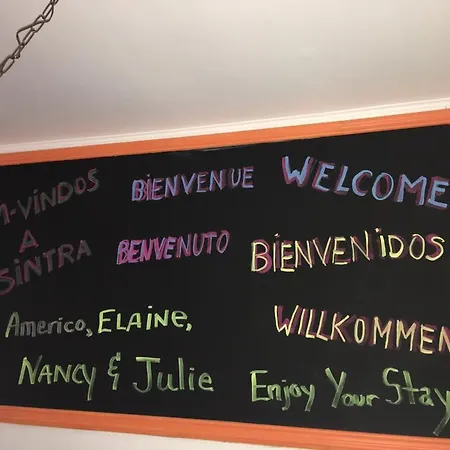 M-VINDOS
A
SINTRA
BIENVENUE
WELCOME
BENVENUTO
BIENVENIDOS
Americo, ELAINE,
NANCY & Julie
WILLKOMMEN
Enjoy Your Stay